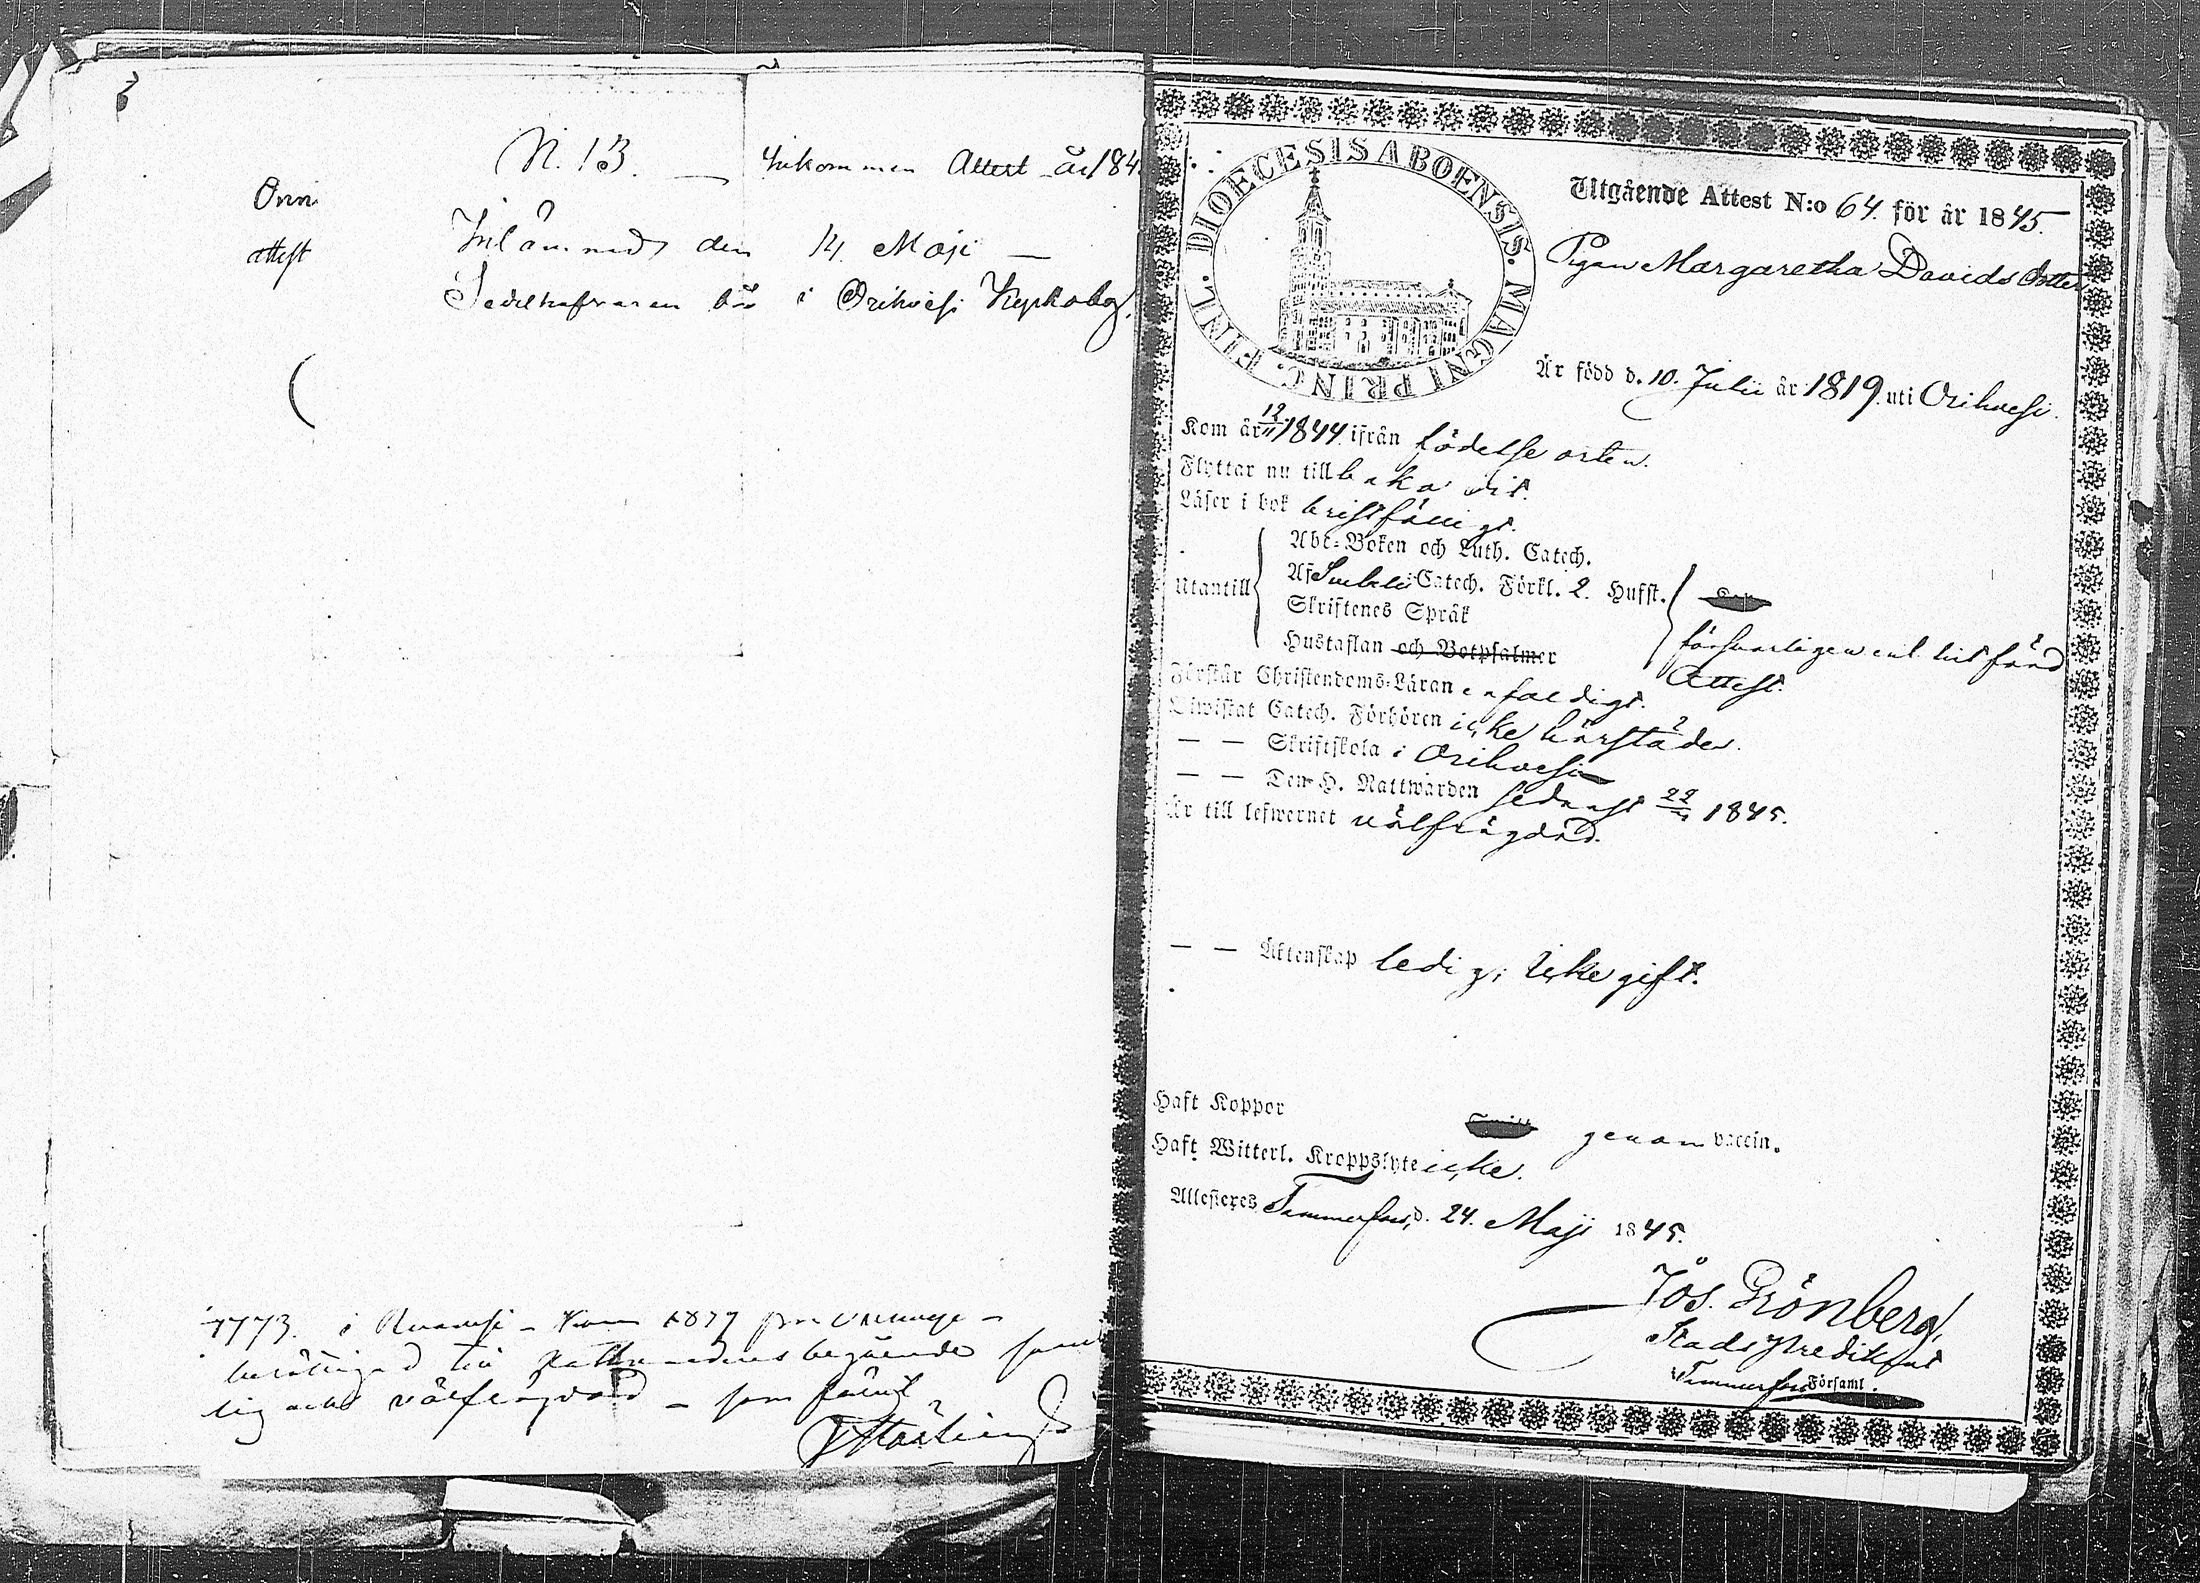 N. 13. — Inkommen Attest år 184
Onni
attest
Inlämnad den 14 Maji —
Sedelhafvaren bor i Orihvesi Kyrkoby.
1773. i Ruovesi – Kom 1837 från
berättigad till Nattvardens begående samt
lig och välfrägdad – som
DIOECESIS ABOENSIS. MAGNI PRINC. FINL.
Utgående Attest N:o 64. för år 1845.
Pigan Margaretha Davids dotter
Är född d. 10. Julii år 1819. uti Orihvesi.
Kom år 12/11 1844 ifrån födelse orten.
Flyttar nu tillbaka dit.
Läser i bok bristfälligt.
Utantill
Abc-Boken och Luth. Catech.
Af Svebelii Catech. Förkl. 2. Hufst.
Skriftenes Språk
Hustaflan och Botpsalmer
försvarligen enl. hitförd
Attest.
Förstår Christendoms-Läran enfaldigt.
Biwistat Catech. Förhören icke härstädes.
— — Skriftskola i Orihvesi
— — Den H. Nattwarden sednast 22/ 1845.
Är till lefwernet välfrägdad.
— — Äktenskap ledig; icke gift.
Haft Koppor genom vaccin.
Haft Witterl. Kroppslyte icke.
Attesteres Tammerfors, d. 24. Maji 1845.
Jos. Grönberg,
Stads Predikant
Tammerfors Församl.